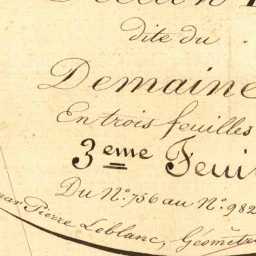 dite du
Demaine
En trois feuilles
3eme Feui
Du N.º 756 au N.º 982
par Pierre Leblanc, Géomètr